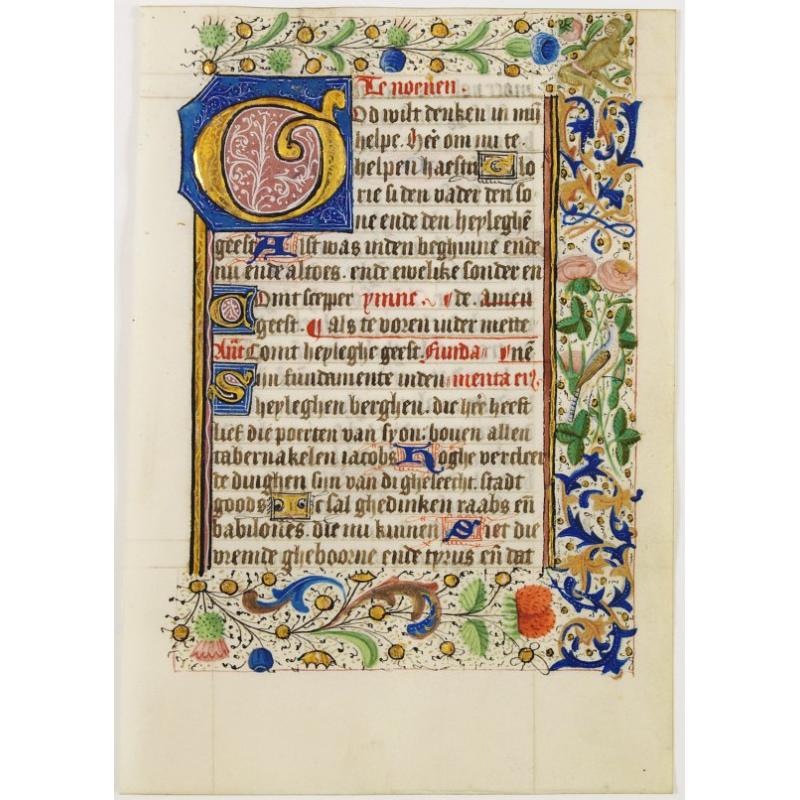 Te noenen.
God wilt denken in mÿ
helpe. hẽr om mi te
helpen haesti Glo
rie si den vader den so
ne ende den heyleghẽ
geest Alst was inden beghinne ende
nu ende altoes. ende ewelike sonder en
Comt scepper ymne. de. amen
geest. als te voren inder mette
Comt heyleghe geest. Funda ynẽ
Sijn fundamente inden menta eiꝰ
heyleghen berghen. die hẽr heeft
lief die poerten van syon: bouen allen
tabernakelen iacobs Hoghe vercleer
te dinghen sijn van di gheseecht. stadt
goods Ic sal ghedinken raabs eñ
babilones. die mi kinnen Siet die
vremde gheboorne ende tyrus eñ dat